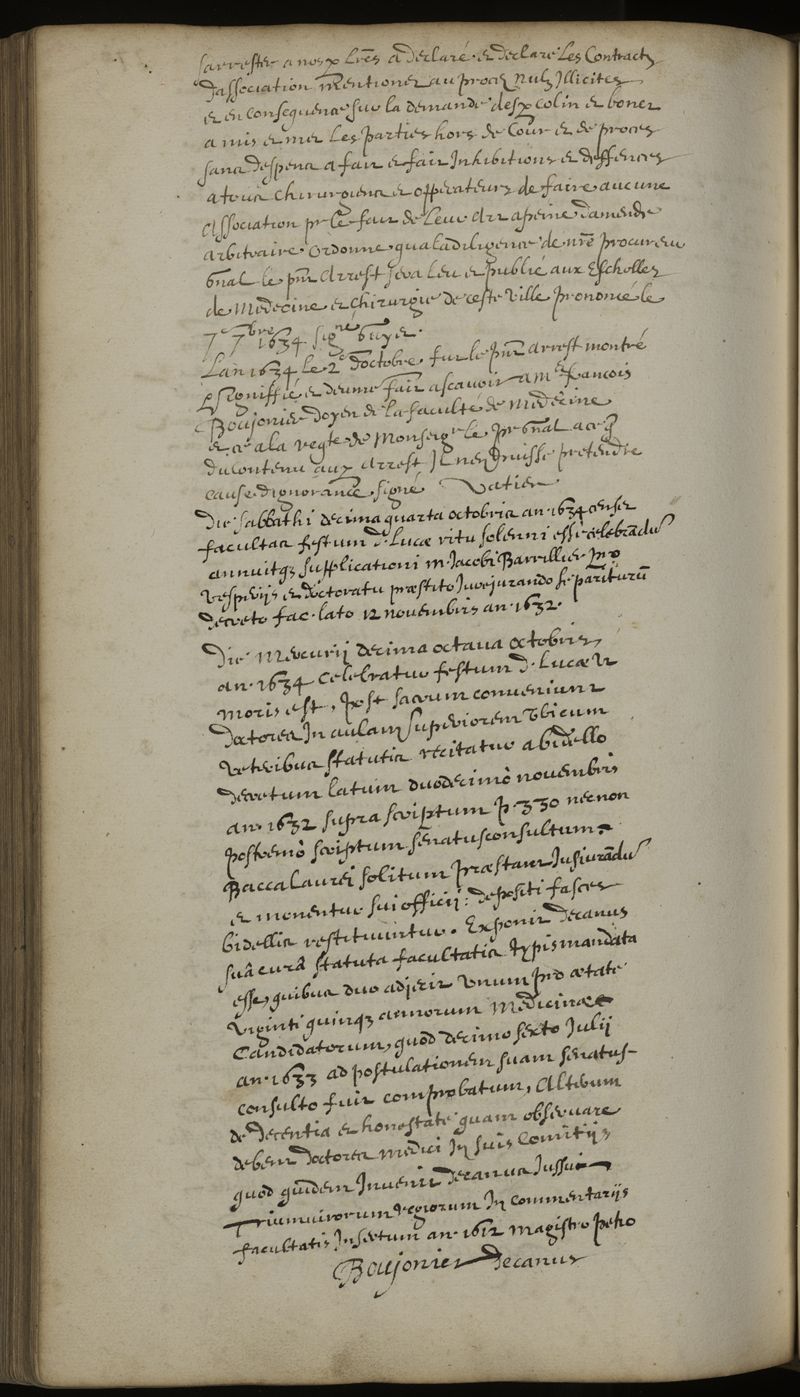 sarrester a nosx lrẽs a declaré et declare les Contractz
dassociation mentionez au procez nulz Illicites
et en consequence sur la demande desx colin et boner
a mis et met les parties hors de Cour et de proces
sans despens a fait et fait Inhibitions et deffences
a tous chirurgiens et opperateurs de faire aucune
Association pr le fait de leur Art a peine damende
arbitraire. Ordonne qua la diligence de nrẽ procureur
gñal le pñt Arrest sera leu et publié aux Escholles
de Medecine et chirurgie de ceste ville prononcé le
7e 7bre 1634 signé
Lan 1634 le 2e doctobre fut le pñt arrest montré
signiffié et deume fait ascavoir a Me francois
Boujonier doyen de la faculté de Medecine
et ce a la reqte de Monseigr le pr gñal a ce q
du contenu aux Arrest Il nen puisse pretendre
cause dignorance. signé Vatier
Die sabbathi decima quarta octobris an. 1634 censet
facultas festum d. Lucæ ritu solenni esse celebrãdũ
annuitqz supplicationi m. Jacobi Barrillier pro
vesperijs et doctoratu præstito Jurejurando se pariturũ
decreto fac. lato 12 novembris an. 1632.
Die Mercurij decima octava octobris
an. 1634 celebratur festum d. Lucæ ut
moris est, post sacrum conveniunt
doctores In aulam superiorem Ubi cum
veteribus statutis recitatur a bidello
decretum latum duodecimo novembris
an. 1632 supra scriptum p. 330 necnon
postremò scriptum senatusconsultum
Baccalaurei solitum præstant Jusiurãdũ
et monentur sui officij: depositi fasces
bidellis restituuntur. Exponit decanus
suâ curâ statuta facultatis typis mandata
esse, quibus duo adjecit Unum pro ætate
viginti quinqz annorum Medicinæ
Candidatorum, quod decimo sexto Julij
an. 1633 ad postulationem suam senatus-
consulto fuit comprobatum, Alterum
de decentia et honestate quam observare
debent doctores medici In suis Comitijs
quod quidem Invenit decanus Jussu
Triumvirorum regiorum In commentarijs
facultatis Insertum an. 1612 magistro petro
Boujonier decanus